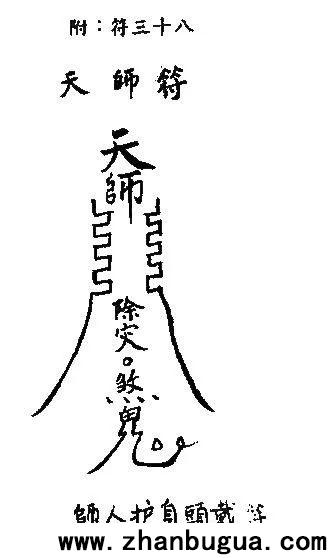 附：符三十八
天師符
天師
除灾。煞鬼
師人护自頭戴
www.zhanbugua.com